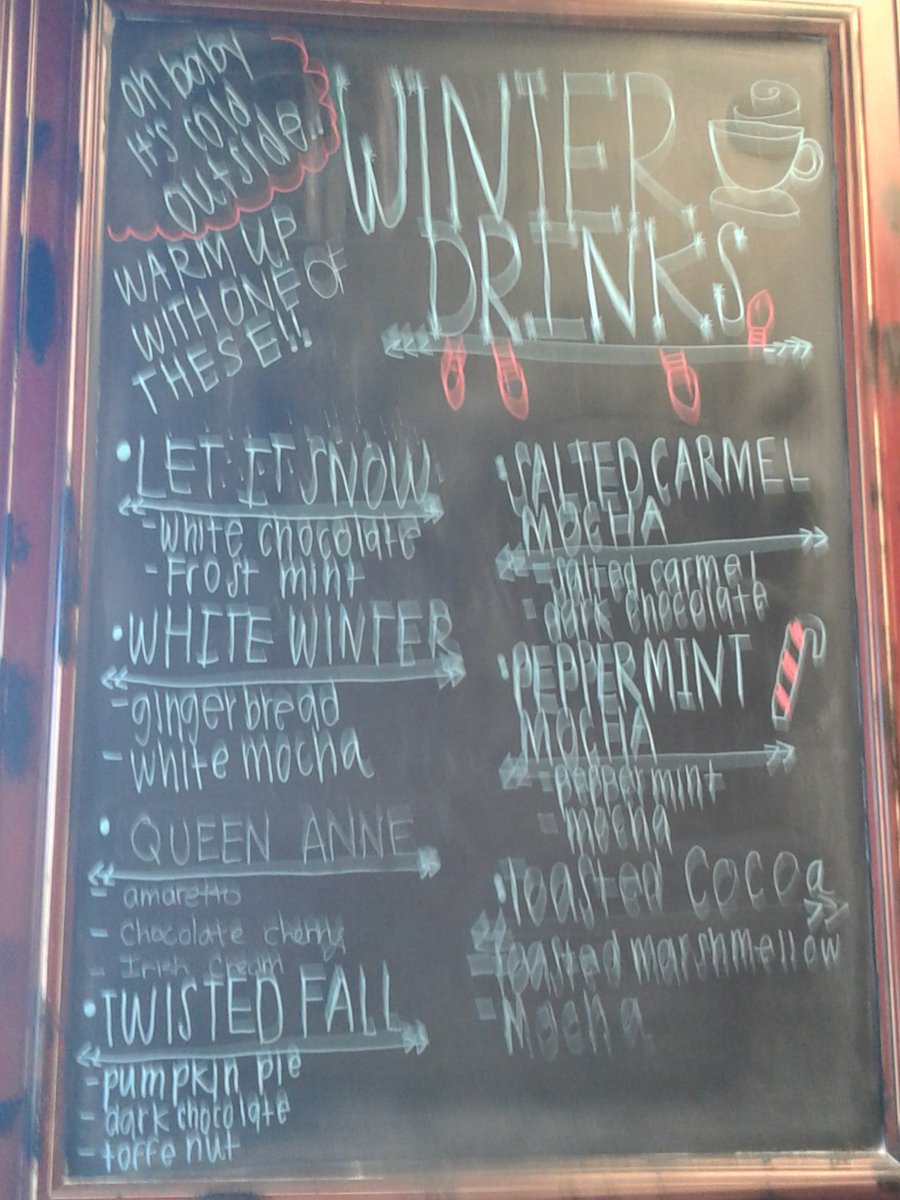 oh baby
it's cold
outside!!
WARM UP
WITH ONE OF
THESE!!
WINTER
DRINKS
• LET IT SNOW
- white chocolate
- Frost mint
• WHITE WINTER
- gingerbread
- white mocha
• QUEEN ANNE
- amaretto
- Chocolate cherry
- Irish Cream
• TWISTED FALL
- pumpkin pie
- dark chocolate
- toffe nut
• SALTED CARMEL
MOCHA
- salted carmel
- dark chocolate
• PEPPERMINT
MOCHA
- peppermint
- mocha
• Toasted Cocoa
- Toasted marshmellow
- Mocha